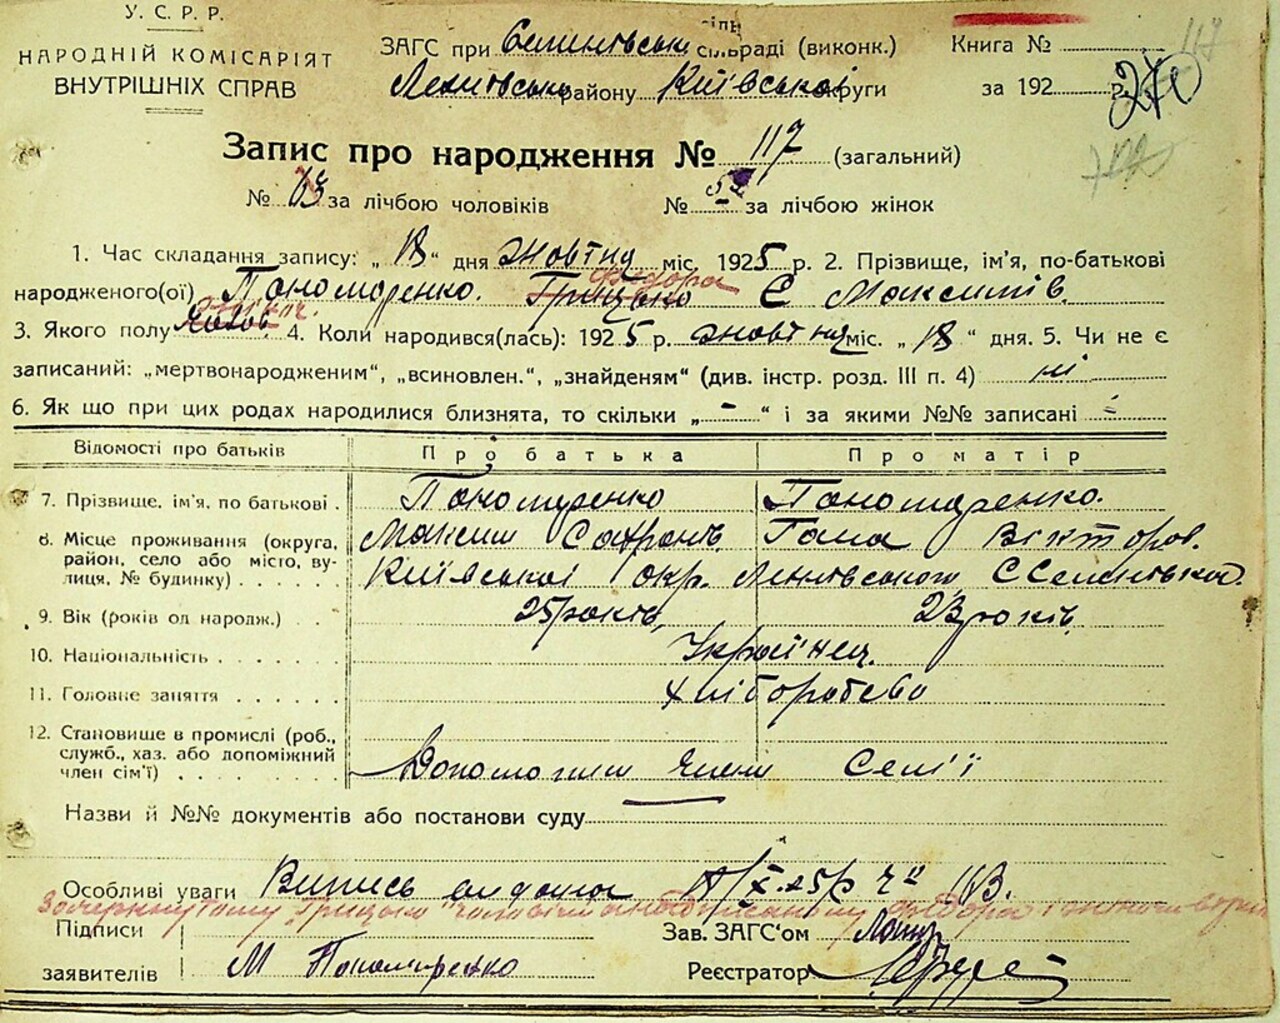 У. С. Р. Р.
НАРОДНІЙ КОМІСАРІЯТ
ВНУТРІШНІХ СПРАВ
ЗАГС при сільраді (виконк.)
району Київської округи
Книга №
за 192 р. 270
Запис про народження № 117 (загальний)
№ за лічбою чоловіків
№ за лічбою жінок
1. Час складання запису: „ 18 “ дня жовтня міс. 1925 р. 2. Прізвище, ім’я, по-батькові
Федора
народженого(ої) Пономаренко. Грицько Є Максимів.
3. Якого полу 4. Коли народився(лась): 1925 р. жовтня міс. „ 18 “ дня. 5. Чи не є
записаний: „мертвонародженим“, „всиновлен.“, „знайденям“ (див. інстр. розд. III п. 4) ні
6. Як що при цих родах народилися близнята, то скільки „ - “ і за якими №№ записані -
Відомості про батьків
Про батька
Про матір
7. Прізвище, ім’я, по батькові .
Пономаренко
Пономаренко.
Максим
Ганна Вікторов.
8. Місце проживання (округа,
район, село або місто, вулиця, № будинку) . . . .
Київської окр.
9. Вік (років од народж.) . .
25 років,
23 років,
10. Національність . . . . . .
Українец.
11. Головне заняття . . . . .
Хліборобство
12. Становище в промислі (роб.,
служб., хаз. або допоміжний
член сім’ї) . . . . . . .
Допомогіжни член Семі’ї
Назви й №№ документів або постанови суду
Особливі уваги Випись видана 18/X.25р 163.
Підписи
заявителів
М Пономаренко
Зав. ЗАГС‘ом
Реєстратор